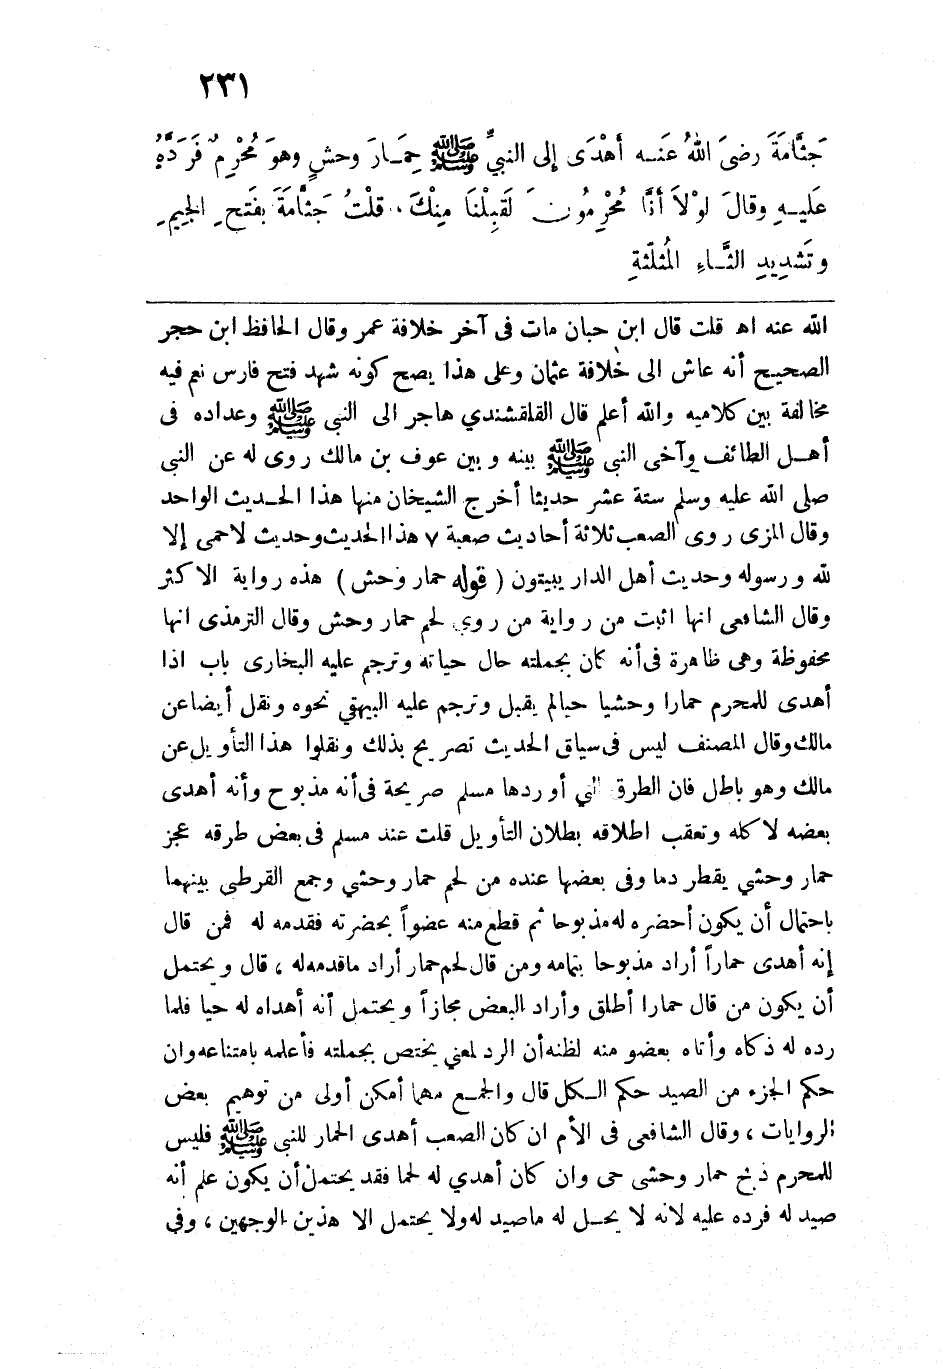 ٢٣١
جَثَّامَةَ رضىَ اللهُ عنـه أهْدَى إلى النبيِّ ﷺ حِمَـارَ وحْشٍ وهوَ مُحْرِمٌ فَرَدَّهُ
عَليـهِ وقالَ لوْلاَ أنَّا مُحْرِمُونَ لَقَبِلْنَا مِنْكَ . قلْتُ جَثَّامَةَ بفَتحِ الجِيمِ
وتَشدِيدِ الثَّـاءِ المُثلّثةِ
الله عنه اه قلت قال ابن حبان مات فى آخر خلافة عمر وقال الحافظ ابن حجر
الصحيح أنه عاش الى خلافة عثمان وعلى هذا يصح كونه شهد فتح فارس نعم فيه
مخالفة بين كلاميه والله أعلم قال القلقشندي هاجر الى النبى ﷺ وعداده فى
أهـل الطائف وآخى النبى ﷺ بينه وبين عوف بن مالك روى له عن النبى
صلى الله عليه وسلم ستة عشر حديثا أخرج الشيخان منها هذا الحـديث الواحد
وقال المزى روى الصعب ثلاثة أحاديث صعبة ٧ هذا الحديث وحديث لاحمى إلا
لله ورسوله وحديث أهل الدار يبيتون ( قوله حمار وحش ) هذه رواية الاكثر
وقال الشافعى انها اثبت من رواية من روي لحم حمار وحش وقال الترمذى انها
محفوظة وهى ظاهرة فى أنه كان بجملته حال حياته وترجم عليه البخارى باب اذا
أهدى للمحرم حمارا وحشيا حيا لم يقبل وترجم عليه البيهقي نحوه ونقل أيضا عن
مالك وقال المصنف ليس فى سياق الحديث تصريح بذلك ونقلوا هذا التأويل عن
مالك وهو باطل فان الطرق التي أوردها مسلم صريحة فى أنه مذبوح وأنه أهدى
بعضه لا كله وتعقب اطلاقه بطلان التأويل قلت عند مسلم فى بعض طرقه عجز
حمار وحشي يقطر دما وفى بعضها عنده من لحم حمار وحشي وجمع القرطبى بينهما
باحتمال أن يكون أحضره له مذبوحا ثم قطع منه عضواً بحضرته فقدمه له فمن قال
إنه أهدى حماراً أراد مذبوحا بتمامه ومن قال لحم حمار أراد ما قدمه له ، قال ويحتمل
أن يكون من قال حمارا أطلق وأراد البعض مجازاً ويحتمـل أنه أهداه له حيا فلما
رده له ذكاه وأتاه بعضو منه لظنه أن الرد لمعني يختص بجملته فأعلمه بامتناعه وان
حكم الجزء من الصيد حكم الـكل قال والجمـع مهما أمكن أولى من توهيم بعض
الروايات ، وقال الشافعى فى الأم ان كان الصعب أهدى الحمار للنبى ﷺ فليس
للمحرم ذبح حمار وحشى حى وان كان أهدي له لحما فقد يحتمل أن يكون علم أنه
صيد له فرده عليه لانه لا يحـل له ما صيد له ولا يحتمل الا هذين الوجهين ، وفي